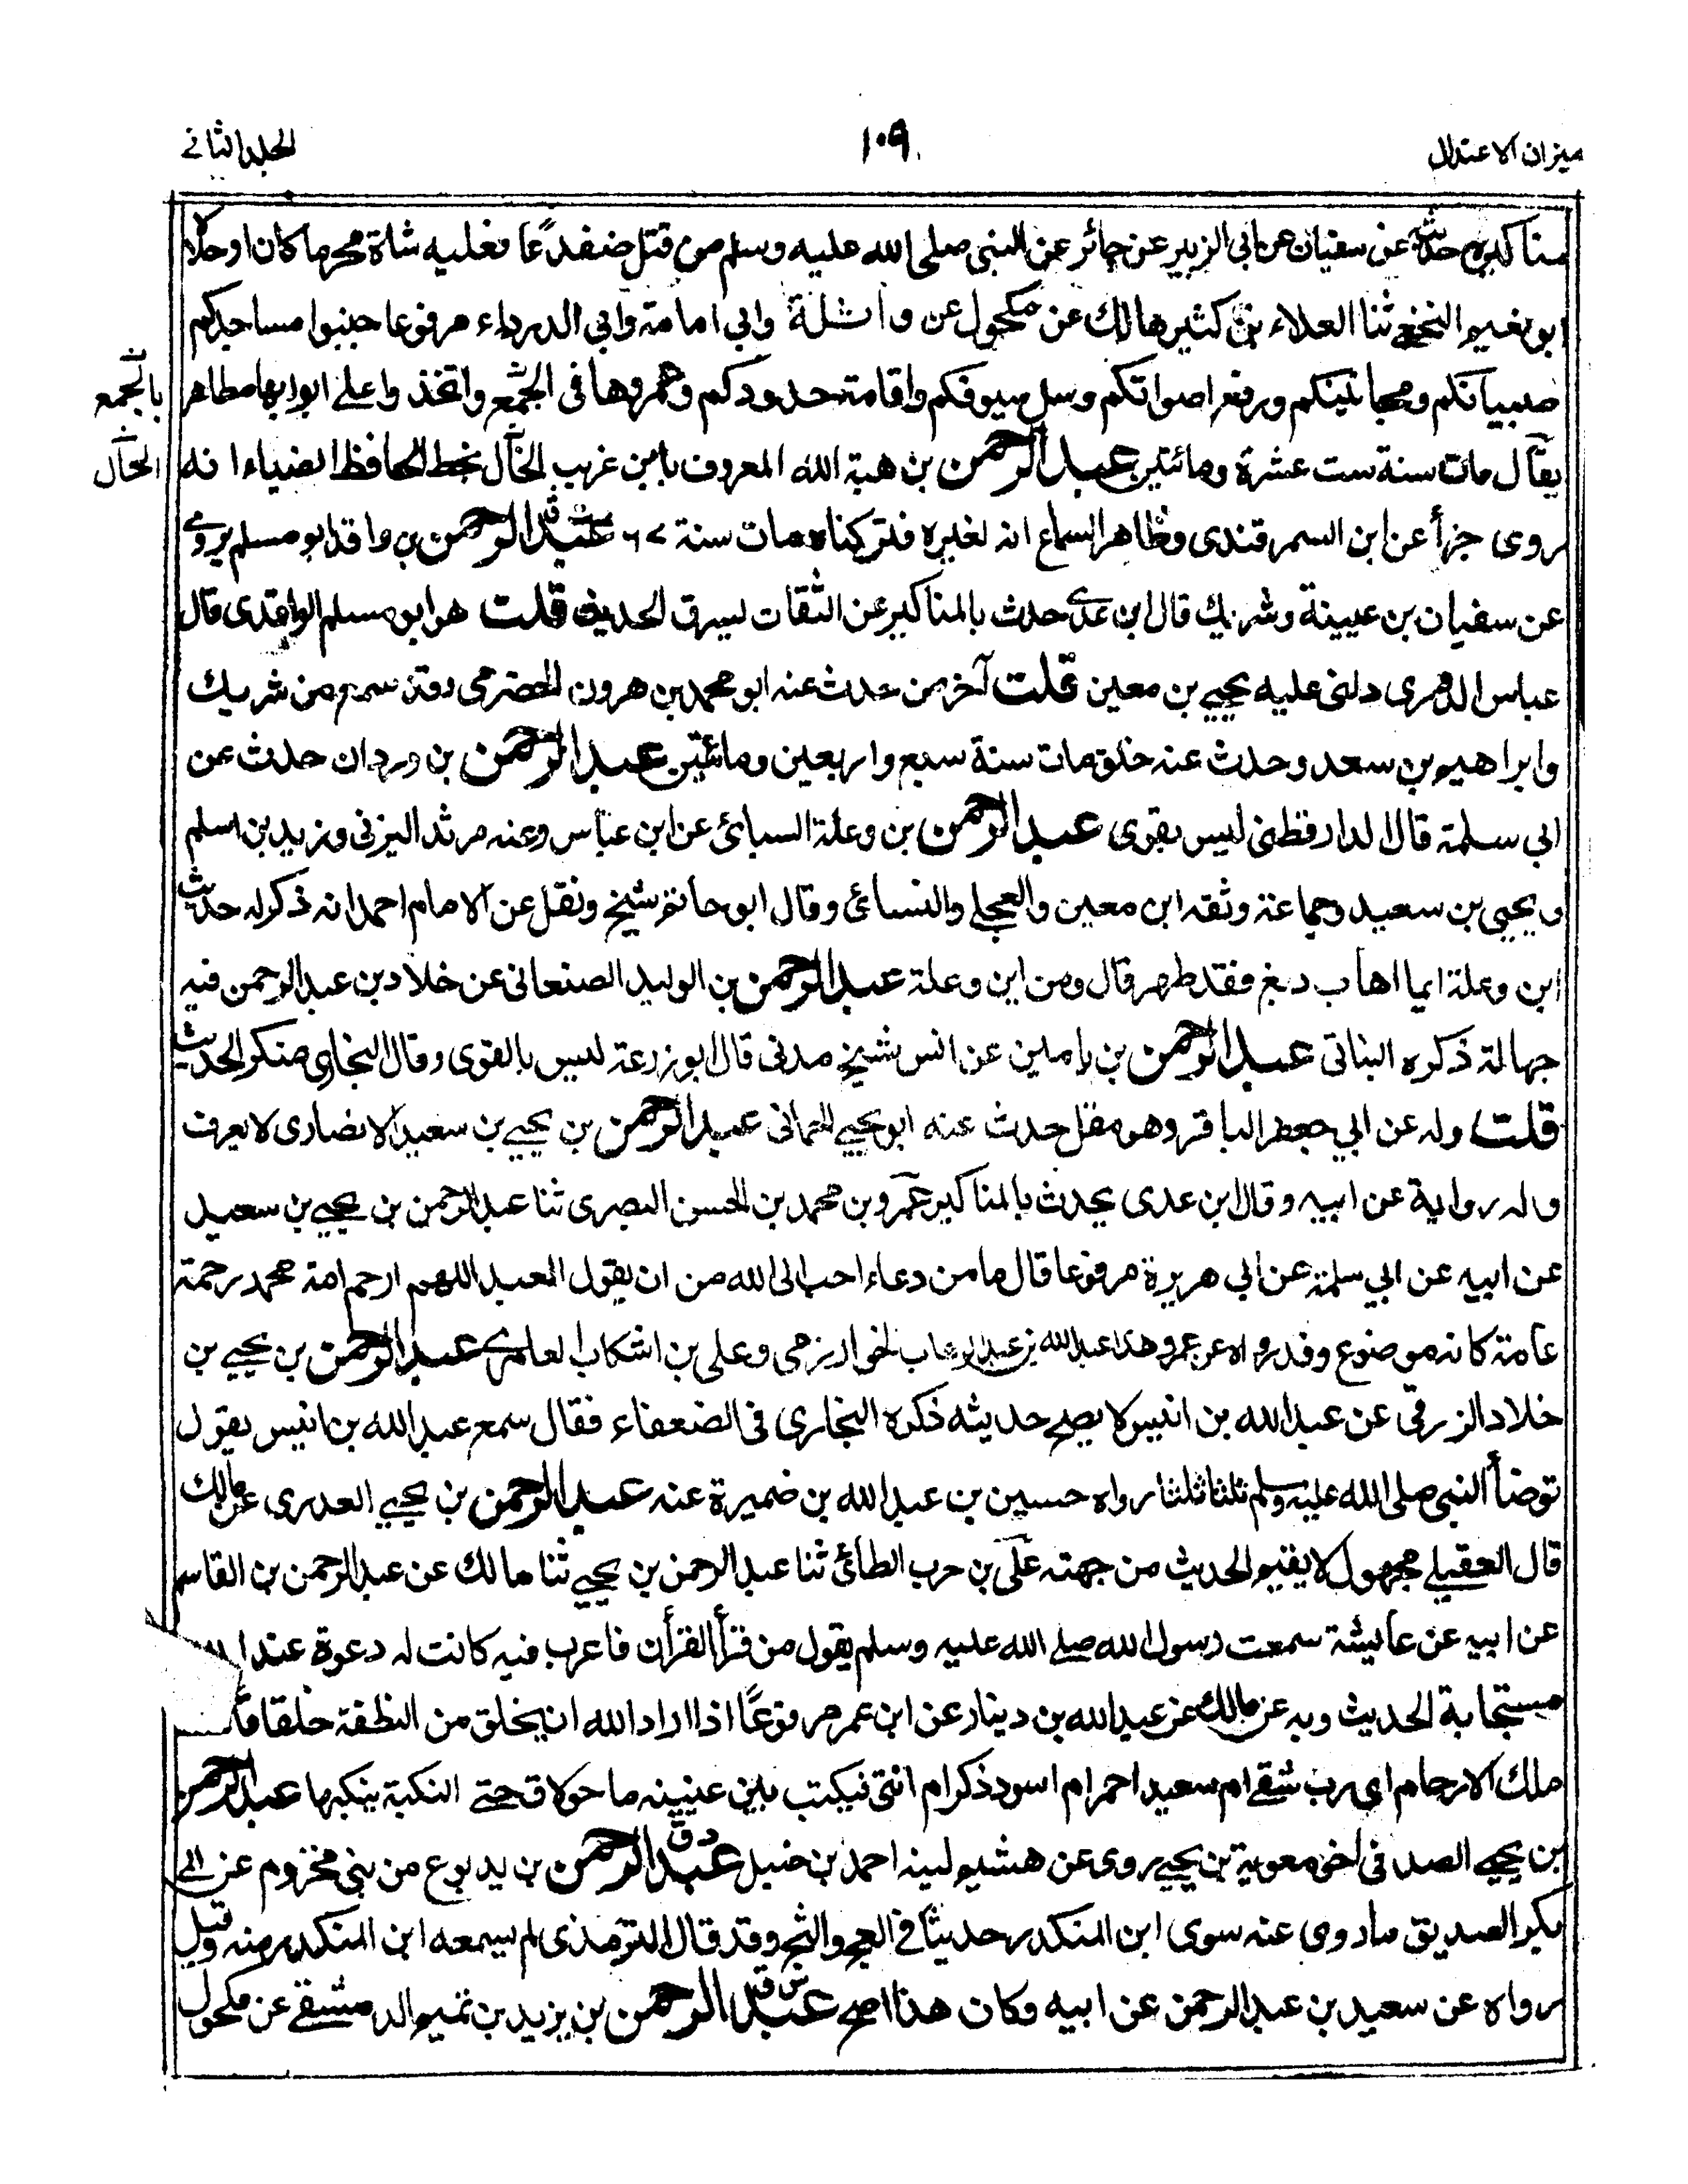 ميزان الاعتدال
١٠٩
الجلد الثانے
مناكيره حديثه عن سفيان عن ابي الزبير عن جابر عن النبي صلى الله عليه وسلم من قتل ضفدعًا فعليه شاة محرما كان او حلالا
ابو نعيم النخعي ثنا العلاء بن كثير هالك عن مكحول عن واثلة وابي امامة وابي الدرداء مرفوعا جنبوا مساجدكم
صبيانكم ومجانينكم ورفع اصواتكم وسل سيوفكم واقامة حدودكم وجمروها في الجمع واتخذوا على ابوابها مطاهر
بالجمع
يقال مات سنة ست عشرة ومائتين عبد الرحمن بن هبة الله المعروف بابن غريب الخال بخط الحافظ الضياء انه
الخال
روى جزأ عن ابن السمرقندى وظاهر السماع انه لغيره فتركناه مات سنة عبد الرحمن بن واقد ابو مسلم يروي
عن سفيان بن عيينة وشريك قال ابن عدي حدث بالمناكير عن الثقات يسرق الحديث قلت هو ابو مسلم الواقدى قال
عباس الدورى دلنى عليه يحيى بن معين قلت آخر من حدث عنه ابو محمد بن هرون الحضرمى وقد سمع من شريك
وابراهيم بن سعد وحدث عنه خلق مات سنة سبع واربعين ومائتين عبد الرحمن بن وردان حدث عن
ابي سلمة قال الدارقطنى ليس بقوى عبد الرحمن بن وعلة السبائى عن ابن عباس وعنه مرثد اليزنى وزيد بن اسلم
ويحيى بن سعيد وجماعة وثقه ابن معين والعجلي والنسائى وقال ابو حاتم شيخ ونقل عن الامام احمد انه ذكر له حديث
ابن وعلة ايما اهاب دبغ فقد طهر قال ومن ابن وعلة عبد الرحمن بن الوليد الصنعانى عن خلاد بن عبد الرحمن فيه
جهالة ذكره البناتى عبد الرحمن بن يامين عن انس شيخ مدنى قال ابو زرعة ليس بالقوى وقال البخاري منكر الحديث
قلت وله عن ابي جعفر الباقر وهو مقل حدث عنه ابو يحيى الحمانى عبد الرحمن بن يحيى بن سعيد الانصارى لا يعرف
وله رواية عن ابيه وقال ابن عدى يحدث بالمناكير عمرو بن محمد بن الحسن البصرى ثنا عبد الرحمن بن يحيى بن سعيد
عن ابيه عن ابي سلمة عن ابى هريرة مرفوعا قال ما من دعاء احب الى الله من ان يقول العبد اللهم ارحم امة محمد رحمة
عامة كانه موضوع وقد رواه عن عمرو هذا عبد الله بن عبد الوهاب الخوارزمى وعلى بن اشكاب العامرى عبد الرحمن بن يحيى بن
خلاد الزرقى عن عبد الله بن انيس لا يصح حديثه ذكره البخارى فى الضعفاء فقال سمع عبد الله بن انيس يقول
توضأ النبى صلى الله عليه وسلم ثلثا ثلثا رواه حسين بن عبد الله بن ضميرة عنه عبد الرحمن بن يحيى العدرى عن مالك
قال العقيلى مجهول لا يقيم الحديث من جهته على بن حرب الطائى ثنا عبد الرحمن بن يحيى ثنا مالك عن عبد الرحمن بن القاسم
عن ابيه عن عايشة سمعت رسول الله صلى الله عليه وسلم يقول من قرأ القرأن فاعرب فيه كانت له دعوة عند
مستجابة الحديث وبه عن مالك عن عبد الله بن دينار عن ابن عمر مرفوعًا اذا اراد الله ان يخلق من النطفة خلقا قال
ملك الارحام اى رب شقى ام سعيد احمر ام اسود ذكر ام انثى فيكتب بين عينيه ما هو لاق حتى النكبة ينكبها عبد الرحمن
بن يحيى الصدفى اخو معوية بن يحيى روى عن هشيم لينه احمد بن حنبل عبد الرحمن بن يربوع من بنى مخزوم عن ابى
بكر الصديق ما روى عنه سوى ابن المنكدر حديثا في العج والثج وقد قال الترمذى لم يسمعه ابن المنكدر منه وقيل
رواه عن سعيد بن عبد الرحمن عن ابيه وكان هذا اصح عبد الرحمن بن يزيد بن تميم الدمشقى عن مكحول